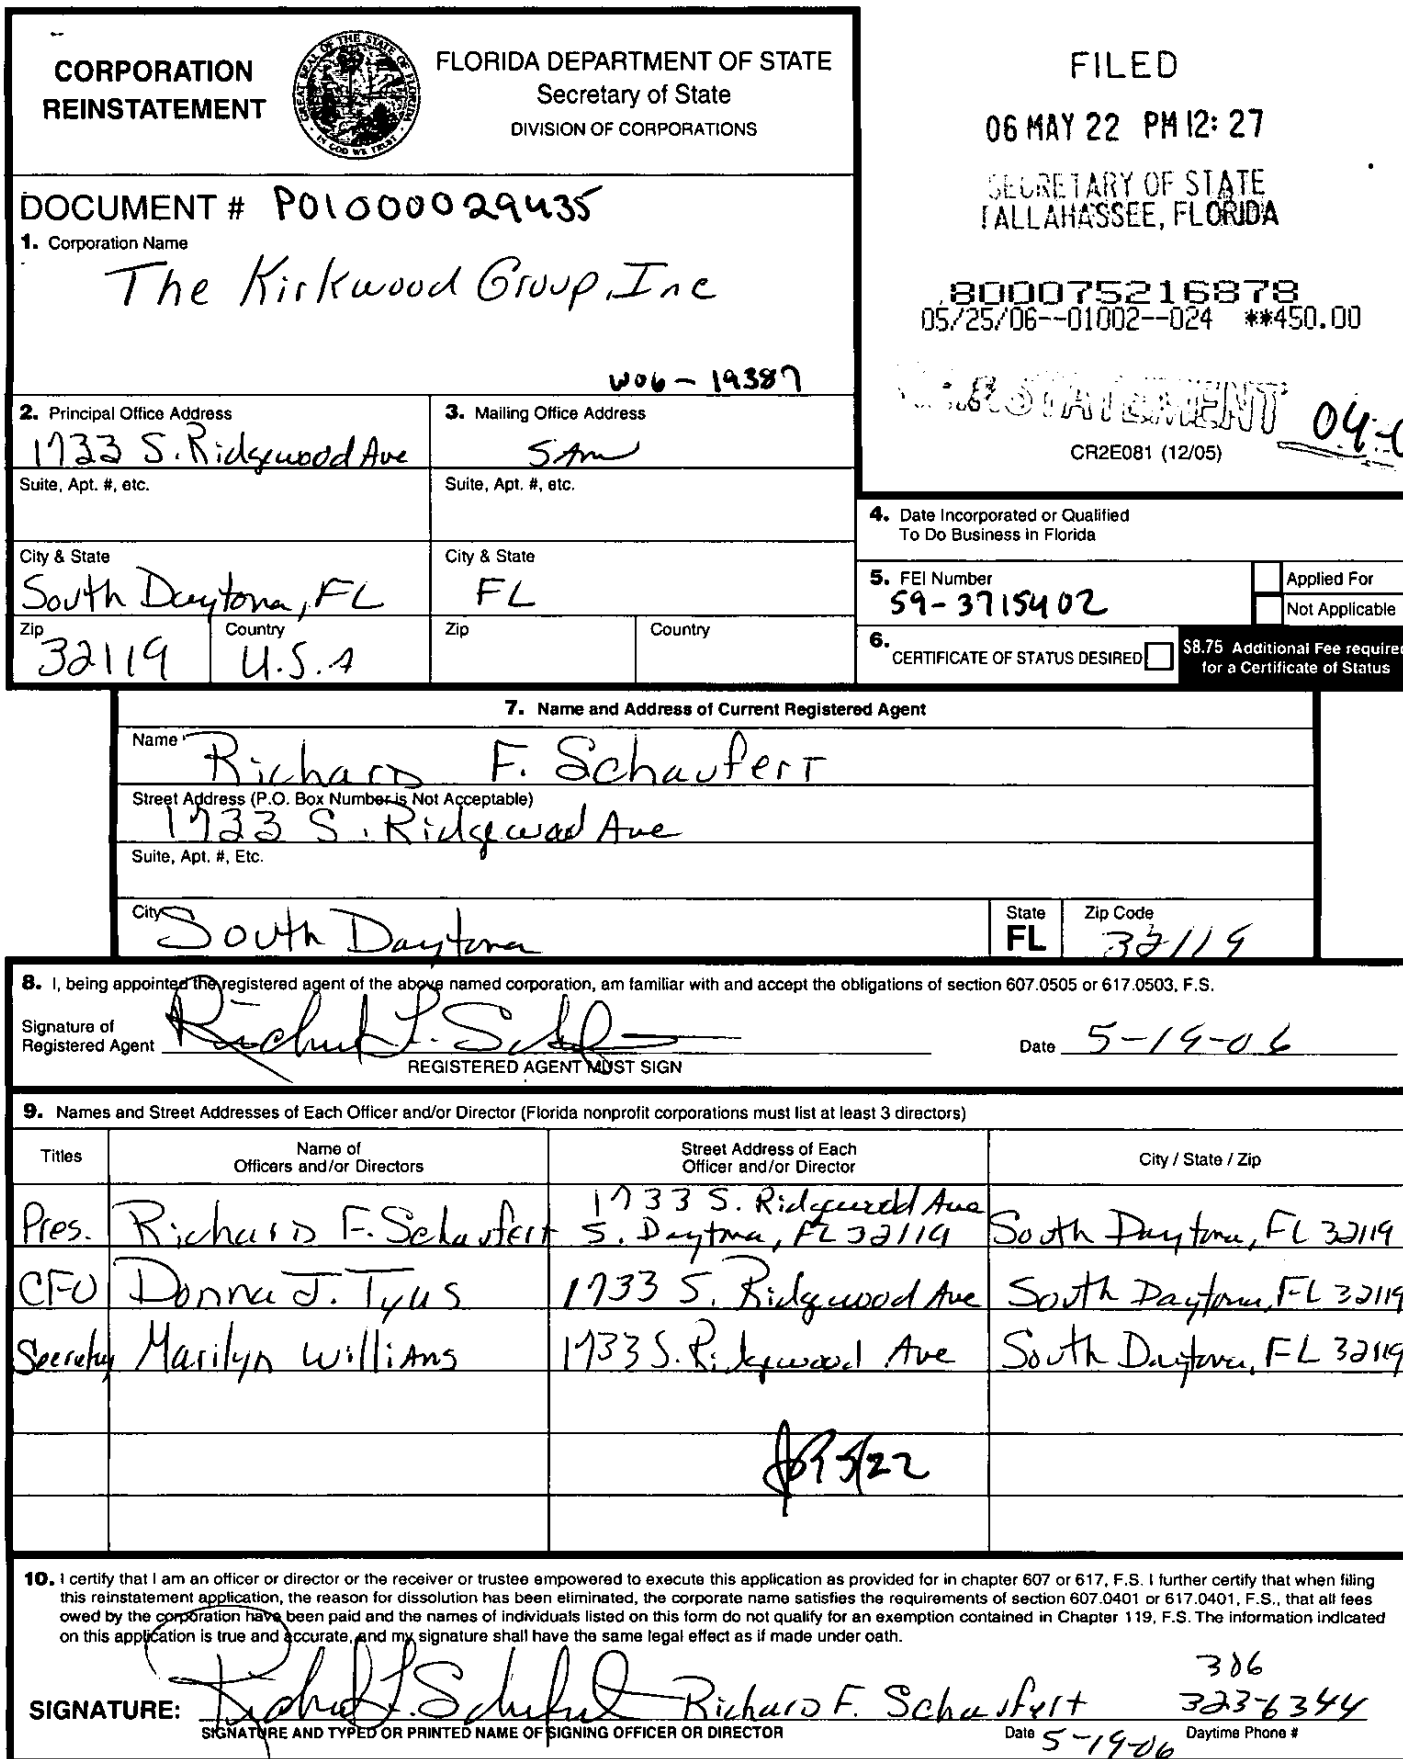 CORPORATION
REINSTATEMENT
FLORIDA DEPARTMENT OF STATE
Secretary of State
DIVISION OF CORPORATIONS
FILED
06 MAY 22 PM 12: 27
SECRETARY OF STATE
TALLAHASSEE, FLORIDA
DOCUMENT # P01000029435
1. Corporation Name
The Kirkwood Group, Inc
W06-19387
800075216878
05/25/06--01002--024 **450.00
REINSTATEMENT
CR2E081 (12/05)
2. Principal Office Address
1733 S. Ridgewood Ave
3. Mailing Office Address
SAm
Suite, Apt. #, etc.
Suite, Apt. #, etc.
City & State
South Daytona, FL
City & State
FL
Zip
32119
Country
U.S.A
Zip
Country
4. Date Incorporated or Qualified
To Do Business in Florida
5. FEI Number
59-3715402
Applied For
Not Applicable
6. CERTIFICATE OF STATUS DESIRED
$8.75 Additional Fee required
for a Certificate of Status
7. Name and Address of Current Registered Agent
Name
Richard F. Schaufert
Street Address (P.O. Box Number is Not Acceptable)
1733 S. Ridgewood Ave
Suite, Apt. #, Etc.
City
South Daytona
State
FL
Zip Code
32119
8. I, being appointed the registered agent of the above named corporation, am familiar with and accept the obligations of section 607.0505 or 617.0503, F.S.
Signature of
Registered Agent
REGISTERED AGENT MUST SIGN
Date 5-19-06
9. Names and Street Addresses of Each Officer and/or Director (Florida nonprofit corporations must list at least 3 directors)
Titles
Name of
Officers and/or Directors
Street Address of Each
Officer and/or Director
City / State / Zip
Pres. Richard F. Schaufert 1733 S. Ridgewood Ave
S. Daytona, FL 32119 South Daytona, FL 32119
CFO Donna J. Tyus 1733 S. Ridgewood Ave South Daytona, FL 32119
Secretary Marilyn Williams 1733 S. Ridgewood Ave South Daytona, FL 32119
5/22
10. I certify that I am an officer or director or the receiver or trustee empowered to execute this application as provided for in chapter 607 or 617, F.S. I further certify that when filing
this reinstatement application, the reason for dissolution has been eliminated, the corporate name satisfies the requirements of section 607.0401 or 617.0401, F.S., that all fees
owed by the corporation have been paid and the names of individuals listed on this form do not qualify for an exemption contained in Chapter 119, F.S. The information indicated
on this application is true and accurate, and my signature shall have the same legal effect as if made under oath.
SIGNATURE: Richard F. Schaufert Richard F. Schaufert
386
323-6344
SIGNATURE AND TYPED OR PRINTED NAME OF SIGNING OFFICER OR DIRECTOR
Date 5-19-06
Daytime Phone #